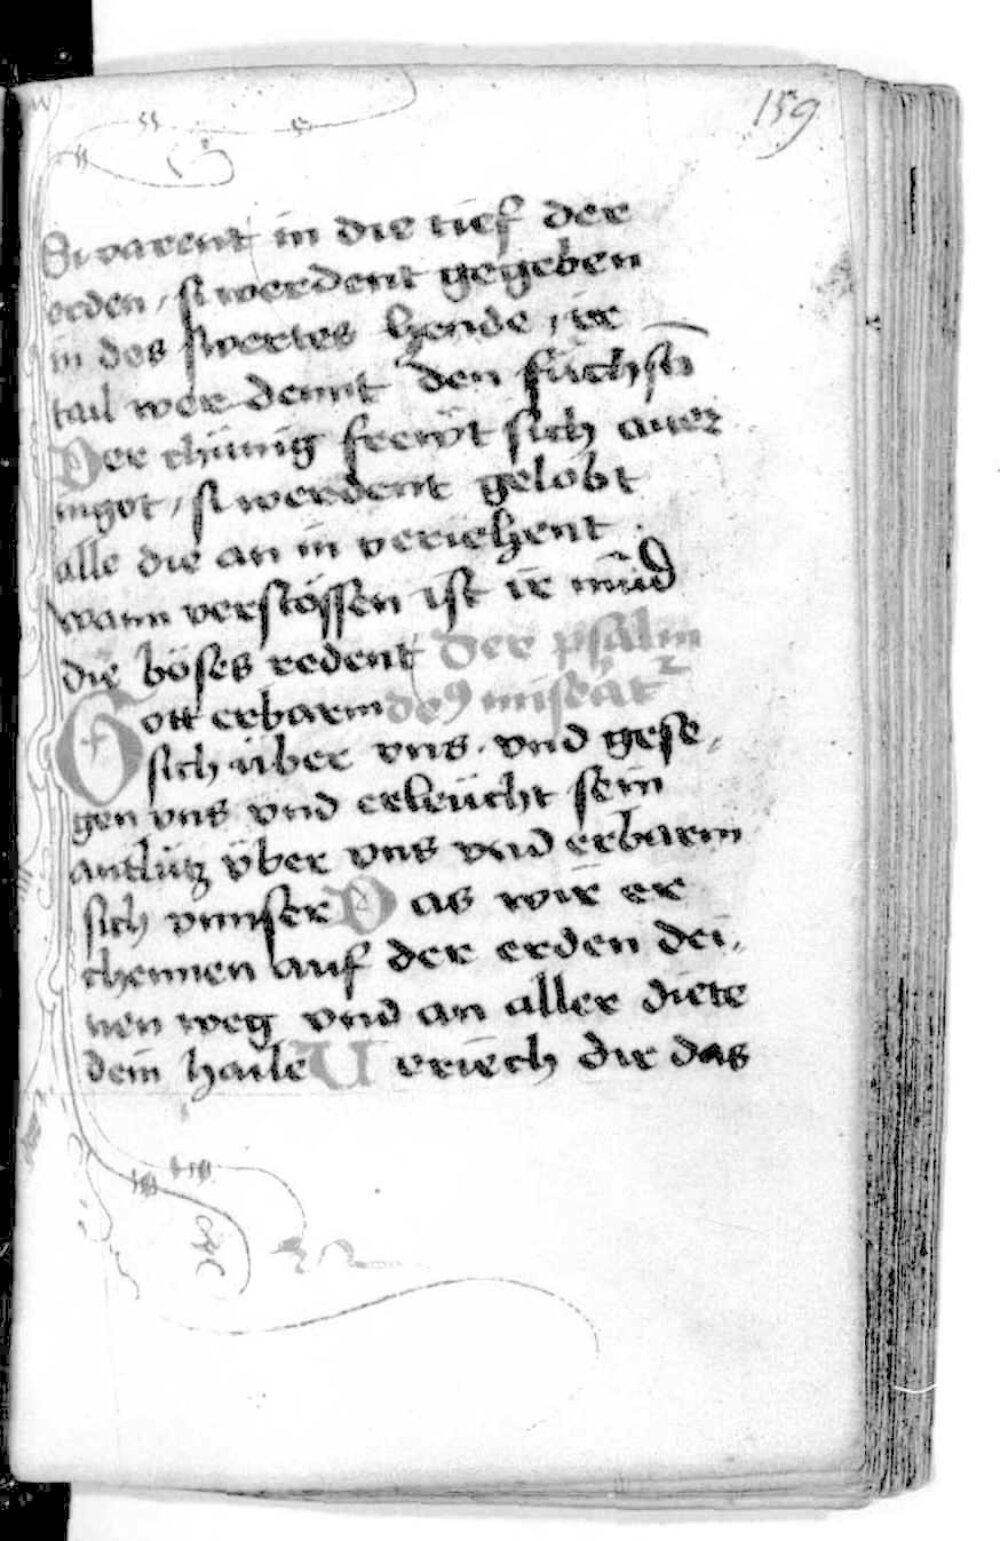 159
Si varent in die tief der
erden / si werdent gegeben
in des swertes hende / ir
tail wer dennt den füchsn̄
Der chünig frewt sich auer
ingot / si werdent gelobt
alle die an in veriehent .
wann verstössen ist ir mūd
die böses redent Der psalm
Gott erbarm deꝰ miseat᷑
sich über vns . vnd gese ,
gen vns vnd erleücht sein
antlütz über vns vnd erbarm
sich vnnser Das wir er
chennen auf der erden dei ,
nen weg vnd an aller diete
dein haile Veriech dir das